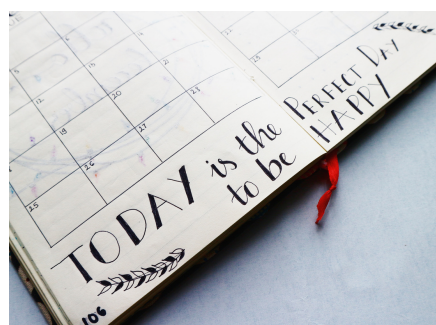 5
12
19
20
21
26
27
28
25
TODAY is the PERFECT DAY
to be HAPPY
106